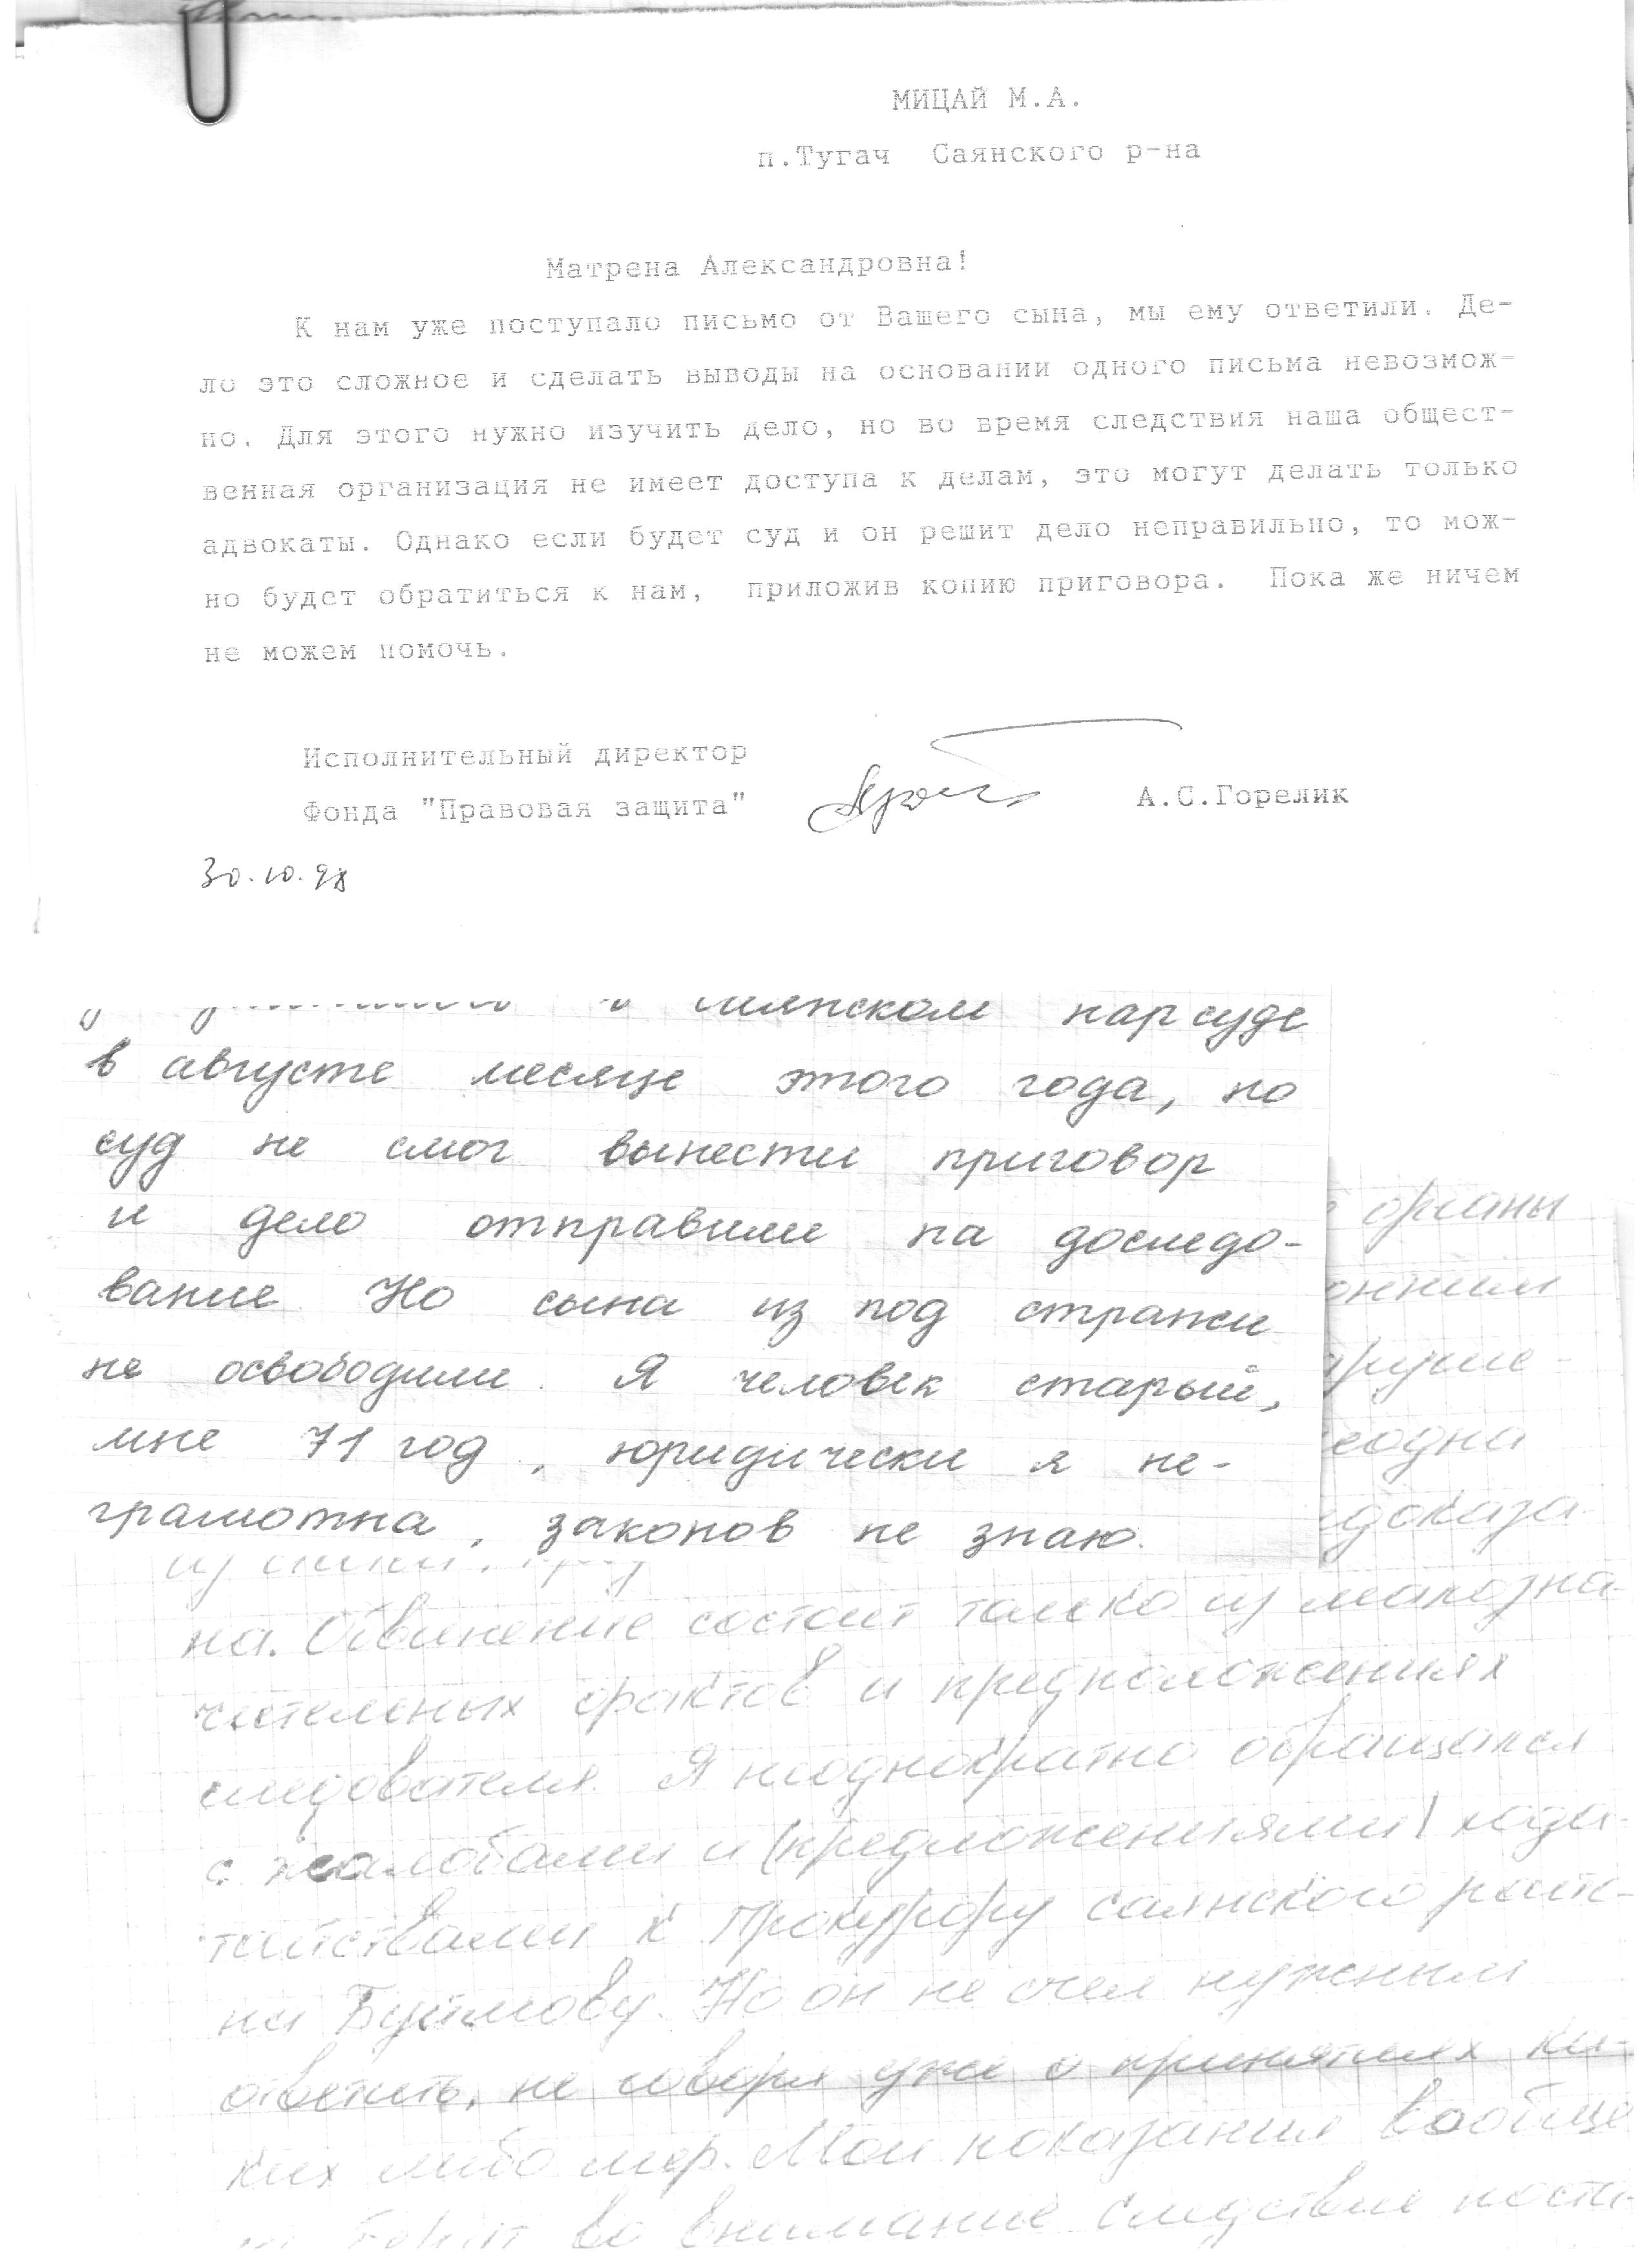 МИЦАЙ М.А.
п.Тугач Саянского р-на
Матрена Александровна!
К нам уже поступало письмо от Вашего сына, мы ему ответили. Де-
ло это сложное и сделать выводы на основании одного письма невозмож-
но. Для этого нужно изучить дело, но во время следствия наша общест-
венная организация не имеет доступа к делам, это могут делать только
адвокаты. Однако если будет суд и он решит дело неправильно, то мож-
но будет обратиться к нам, приложив копию приговора. Пока же ничем
не можем помочь.
Исполнительный директор
Фонда "Правовая защита" А.С.Горелик
30.10.98
нарсуде
в августе месяце этого года, но
суд не смог вынести приговор
и дело отправили на доследо-
вание. Но сына из под стражи
не освободили. Я человек старый,
мне 71 год, юридически я не-
грамотна, законов не знаю.
органы
на. Обвинение состоит только из малозна-
чительных фактов и предположениях
следователя. Я неоднократно обращался
с жалобами и (предложениями) хода-
тайствами к Прокурору саянского райо-
на Буйлову. Но он не счел нужным
ответить, не говоря уже о принятиях ка-
ких либо мер. Мои показания вообще
во внимание следствие